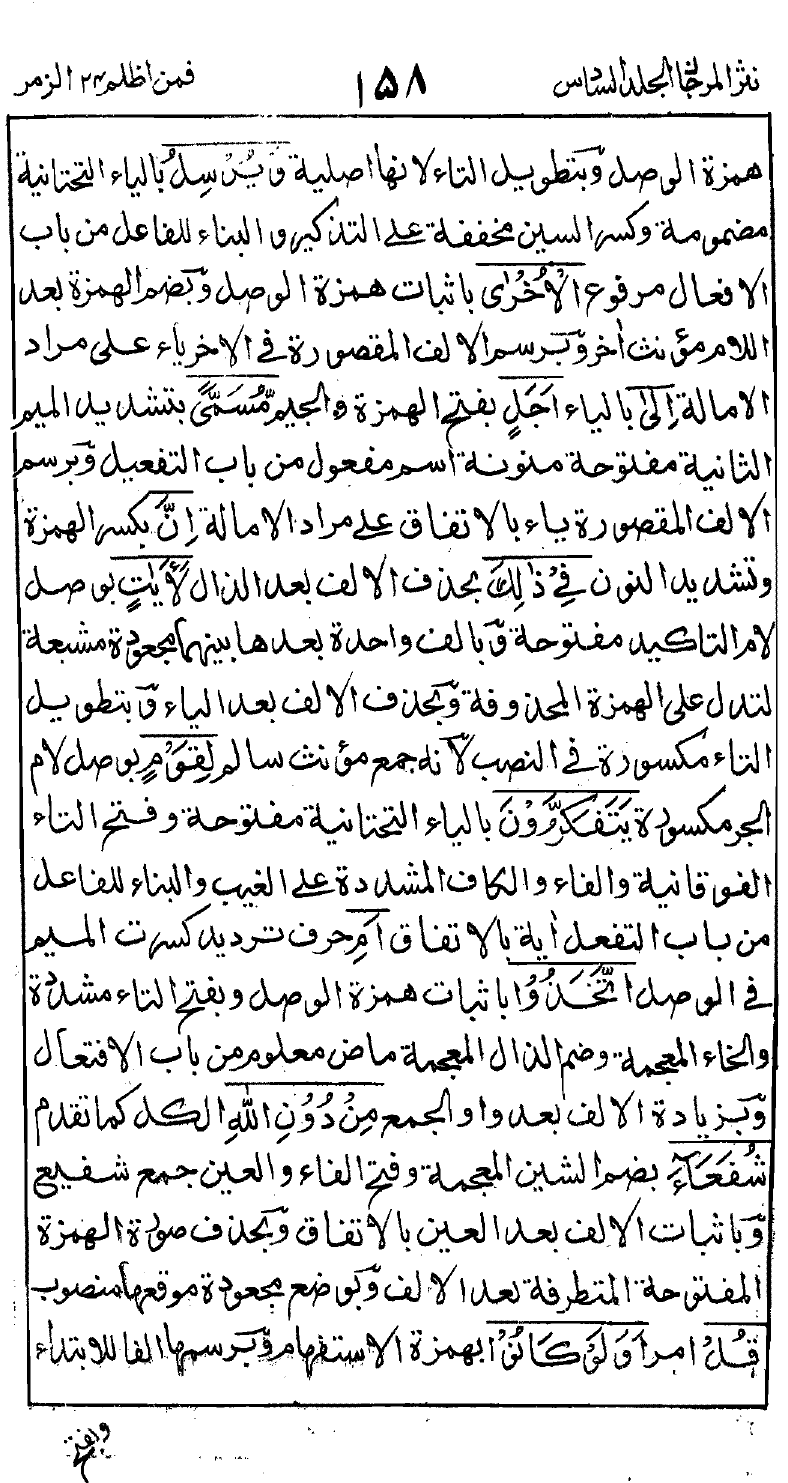 نثر المرجان المجلد السادس ١٥٨ فمن اظلم ٢٤ الزمر
همزة الوصل وَبتطويل التاء لانها اصلية وَيُرْسِلُ بالياء التحتانية
مضمومة وكسر السين مخففة على التذكير و البناء للفاعل من باب
الافعال مرفوع الْاُخْرٰى باثبات همزة الوصل وَبضم الهمزة بعد
اللام مؤنث اٰخر وَبرسم الالف المقصورة فى الاخرياء على مراد
الامالة اِلٰى بالياء اَجَلٍ بفتح الهمزة والجيم مُّسَمًّى بتشديد الميم
الثانية مفتوحة منونة اسم مفعول من باب التفعيل وَبرسم
الالف المقصورة ياء بالاتفاق على مراد الامالة اِنَّ بكسر الهمزة
وتشديد النون فِىْ ذٰلِكَ بحذف الالف بعد الذال لَاٰيٰتٍ بوصل
لام التاكيد مفتوحة وَبالف واحدة بعدها بينهما مجعودة مشبعة
لتدل على الهمزة المحذوفة وَبحذف الالف بعد الياء وَبتطويل
التاء مكسورة فى النصب لاَنه جمع مؤنث سالم لِقَوْمٍ بوصل لام
الجر مكسورة يَتَفَكَّرُوْنَ بالياء التحتانية مفتوحة وفتح التاء
الفوقانية والفاء والكاف المشددة على الغيب والبناء للفاعل
من باب التفعل اٰية بالاتفاق اَمِ حرف ترديد كسرت الميم
فى الوصل اتَّخَذُوْا باثبات همزة الوصل وبفتح التاء مشددة
والخاء المعجمة وضم الذال المعجمة ماض معلوم من باب الافتعال
وَبزيادة الالف بعد واو الجمع مِنْ دُوْنِ اللّٰهِ الكل كما تقدم
شُفَعَآءَ بضم الشين المعجمة وفتح الفاء والعين جمع شفيع
وَباثبات الالف بعد العين بالاتفاق وَبحذف صورة الهمزة
المفتوحة المتطرفة بعد الالف وَبوضع مجعودة موقعها منصوب
قُلْ امر اَوَلَوْ كَانُوْا بهمزة الاستفهام وَبرسمها الفا للابتداء
وبفتح